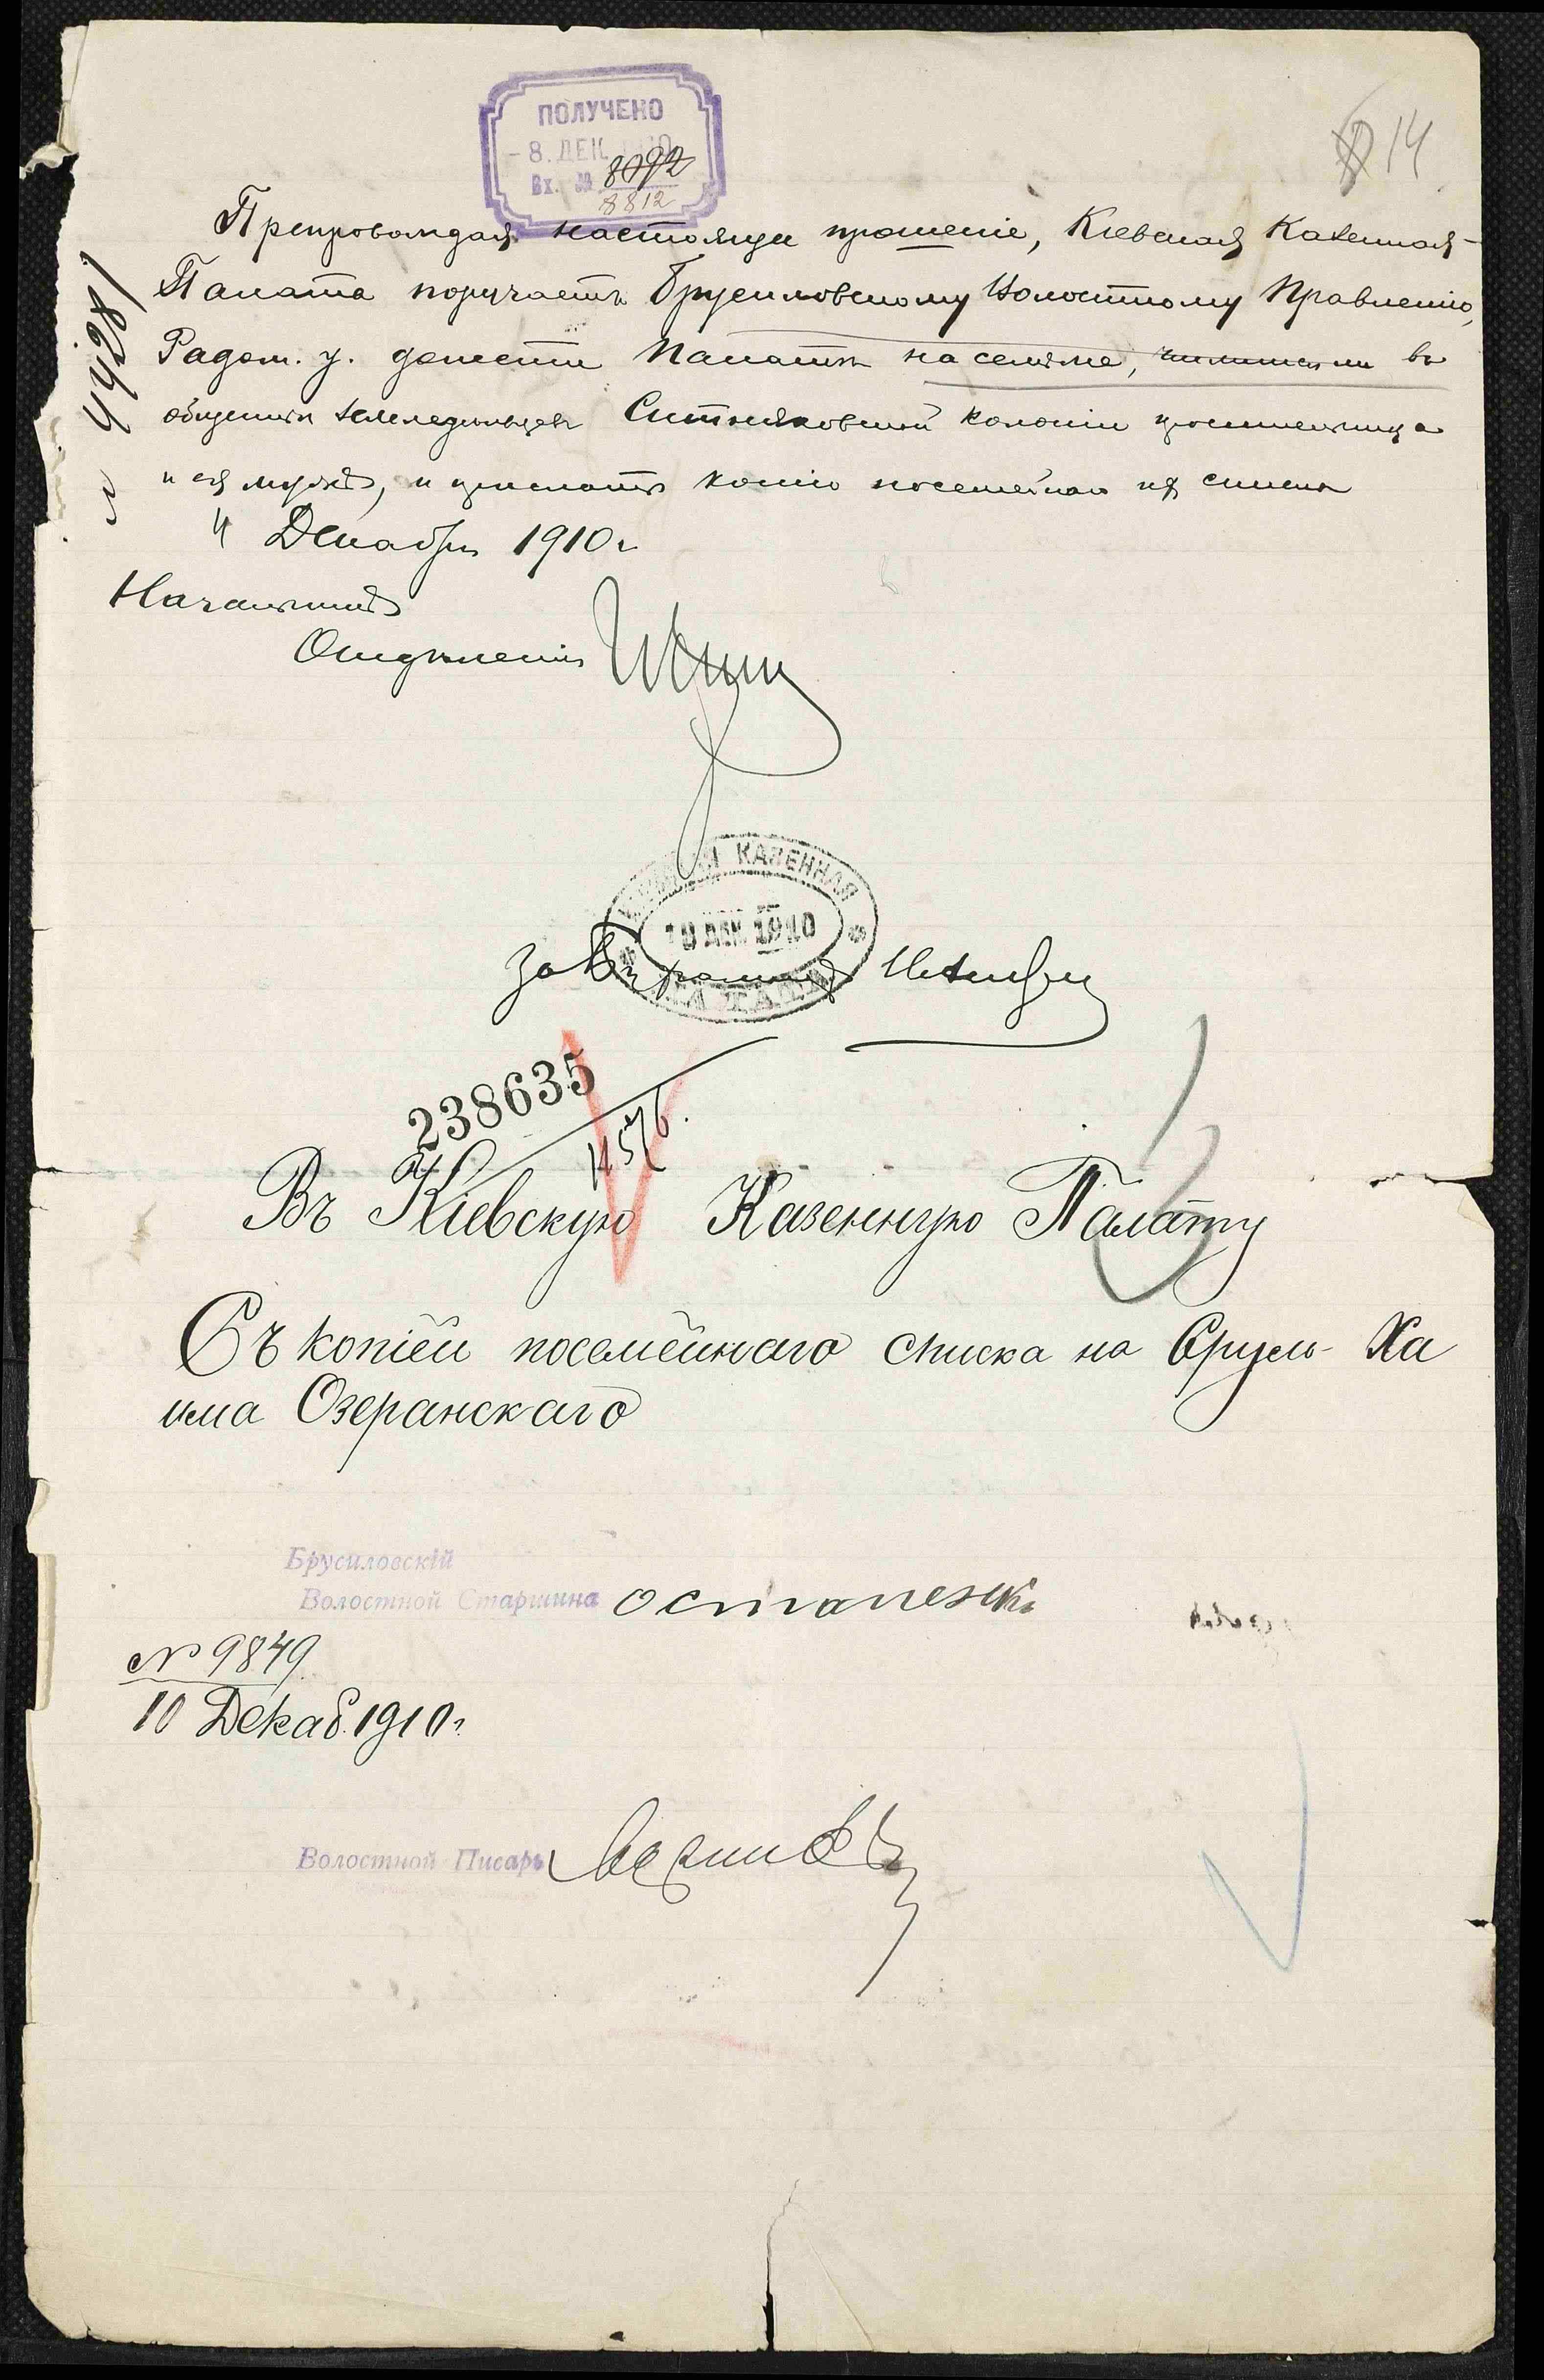 ПОЛУЧЕНО
-8. ДЕК. 1910
Вх. № 8092
8812
14
№ 44281
Препровождая настоящее прошеніе, Кіевская Казенная
Палата поручаетъ Брусиловскому Волостному Правленію,
Радом. у. донести Палатѣ на семъ же, числится ли въ
обществѣ земледѣльцевъ Ситняковской колоніи просительница
и ея мужъ, и прислать копію посемейнаго ихъ списка
4 Декабря 1910 г.
Начальникъ
Отдѣленія
КАЗЕННАЯ
10 ДЕК. 1910
ПАЛАТА
238635
Въ Кіевскую Казенную Палату
Съ копіей посемейнаго списка на Сруль-Ха
има Озеранскаго
Брусиловскій
Волостной Старшина Остапенко
№ 9849
10 Декаб. 1910 г.
Волостной Писарь